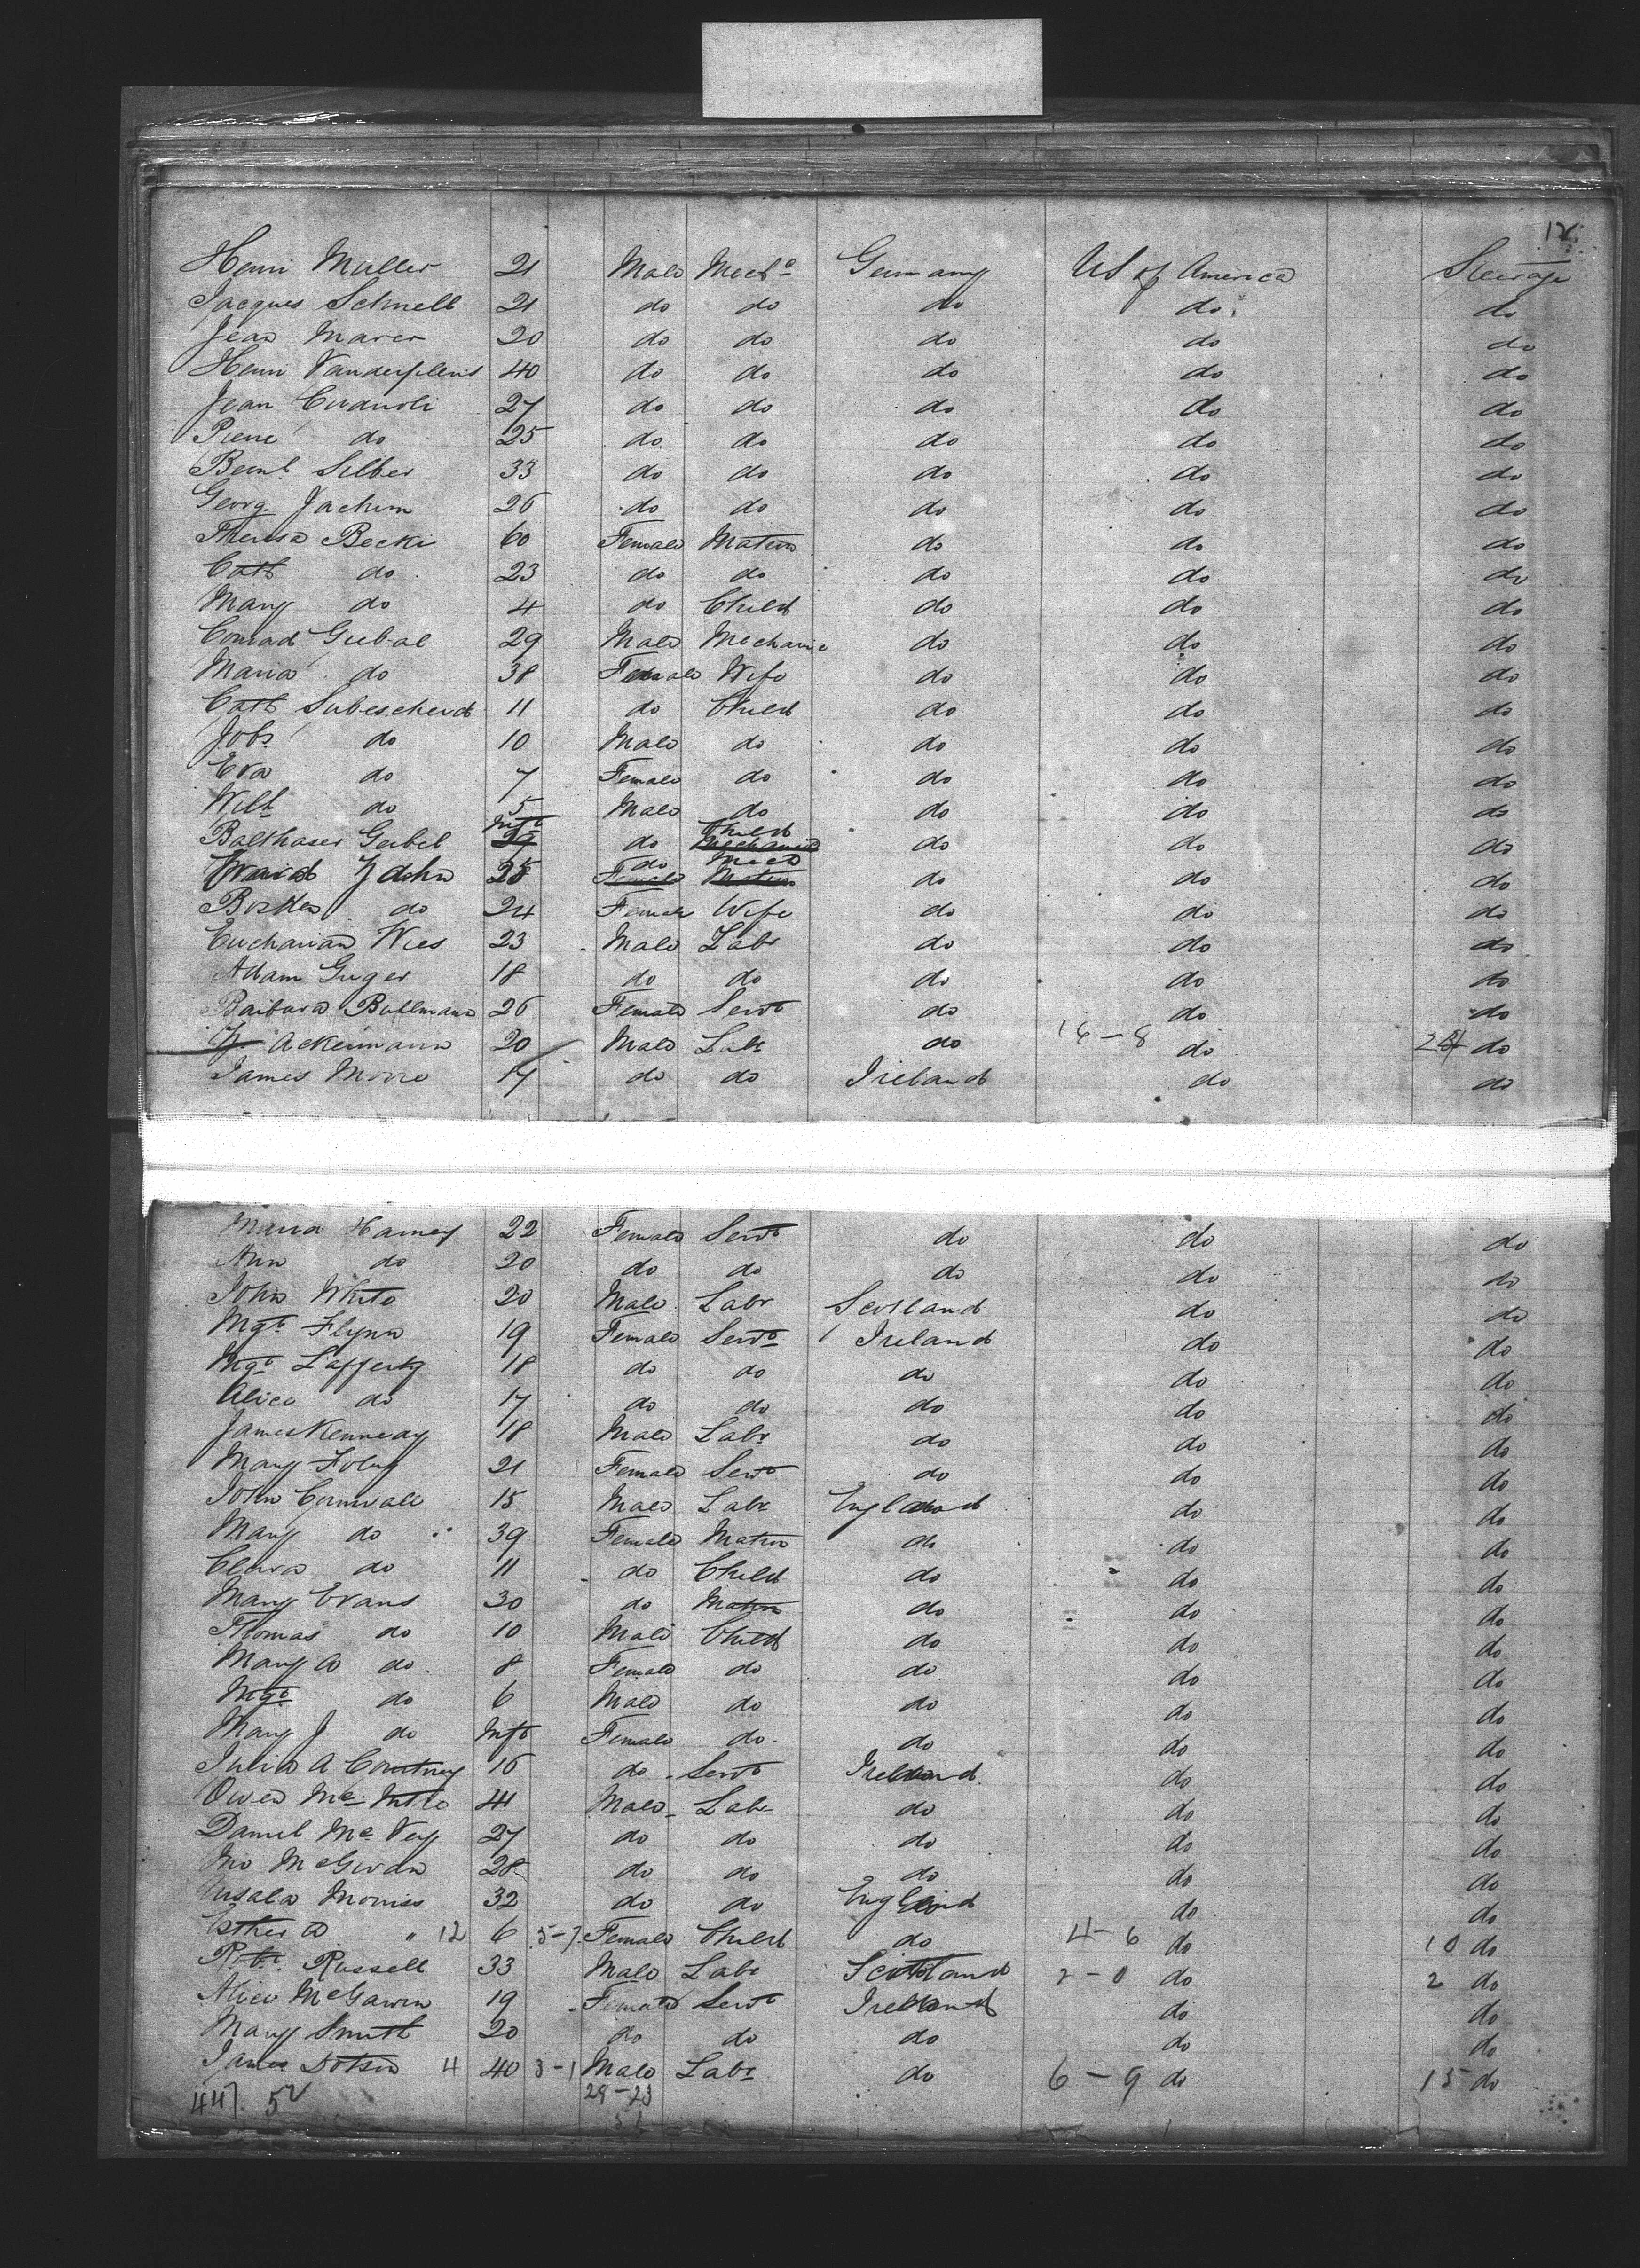 12
Henri Muller 21 Male Mech Germany US of America Steerage
Jacques Schnell 21 do do do do do
Jean Marer 20 do do do do do
Henri 40 do do do do do
Jean 27 do do do do do
Pierre do 25 do do do do do
Bernh Silber 33 do do do do do
Georg Jachim 26 do do do do do
Theresa Becki 60 Female Matron do do do
Cath do 23 do do do do do
Mary do 4 do Child do do do
Conrad Geibal 29 Male Mechanic do do do
Maria do 38 Female Wife do do do
Cath 11 do Child do do do
Joh do 10 Male do do do do
Eva do 7 Female do do do do
Wilh do 5 Male do do do do
Balthaser Geibel Inft 29 do Child Mechanic do do do
Jdshn 25 do Female Mech Matron do do do
do 24 Female Wife do do do
Wies 23 Male Labr do do do
Adam Guger 18 do do do do do
Barbara Bullmann 26 Female Servt do do do
Ackermann 20 Male Labr do 16-8 do do
James Morro 17 do do Ireland do do
Maria Harney 22 Female Servt do do do
Ann do 20 do do do do do
John White 20 Male Labr Scotland do do
Mgt Flynn 19 Female Servt Ireland do do
Mgt Lafferty 18 do do do do do
Alice do 17 do do do do do
James Kenneday 18 Male Labr do do do
Mary Foley 21 Female Servt do do do
John Cornwall 15 Male Labr England do do
Mary do 39 Female Matron do do do
Clara do 11 do Child do do do
Mary Evans 30 do Matron do do do
Thomas do 10 Male Child do do do
Mary A do 8 Female do do do do
Mgt do 6 Male do do do do
Mary J do Inft Female do do do do
Julia A Courtney 16 do Servt Ireland do do
Owen Mc 41 Male Labr do do do
Daniel Mc Vey 27 do do do do do
Jno McGivan 28 do do do do do
Morriss 32 do do England do do
Esther A " 12 6 5-7 Female Child do 4-6 do 10 do
Robt Russell 33 Male Labr Scotland 2-0 do 2 do
Alice McGawin 19 Female Servt Ireland do do
Mary Smith 20 do do do do do
James Dotson 4 40 3-1 Male Labr do 6-9 do 15 do
447 52 29-23